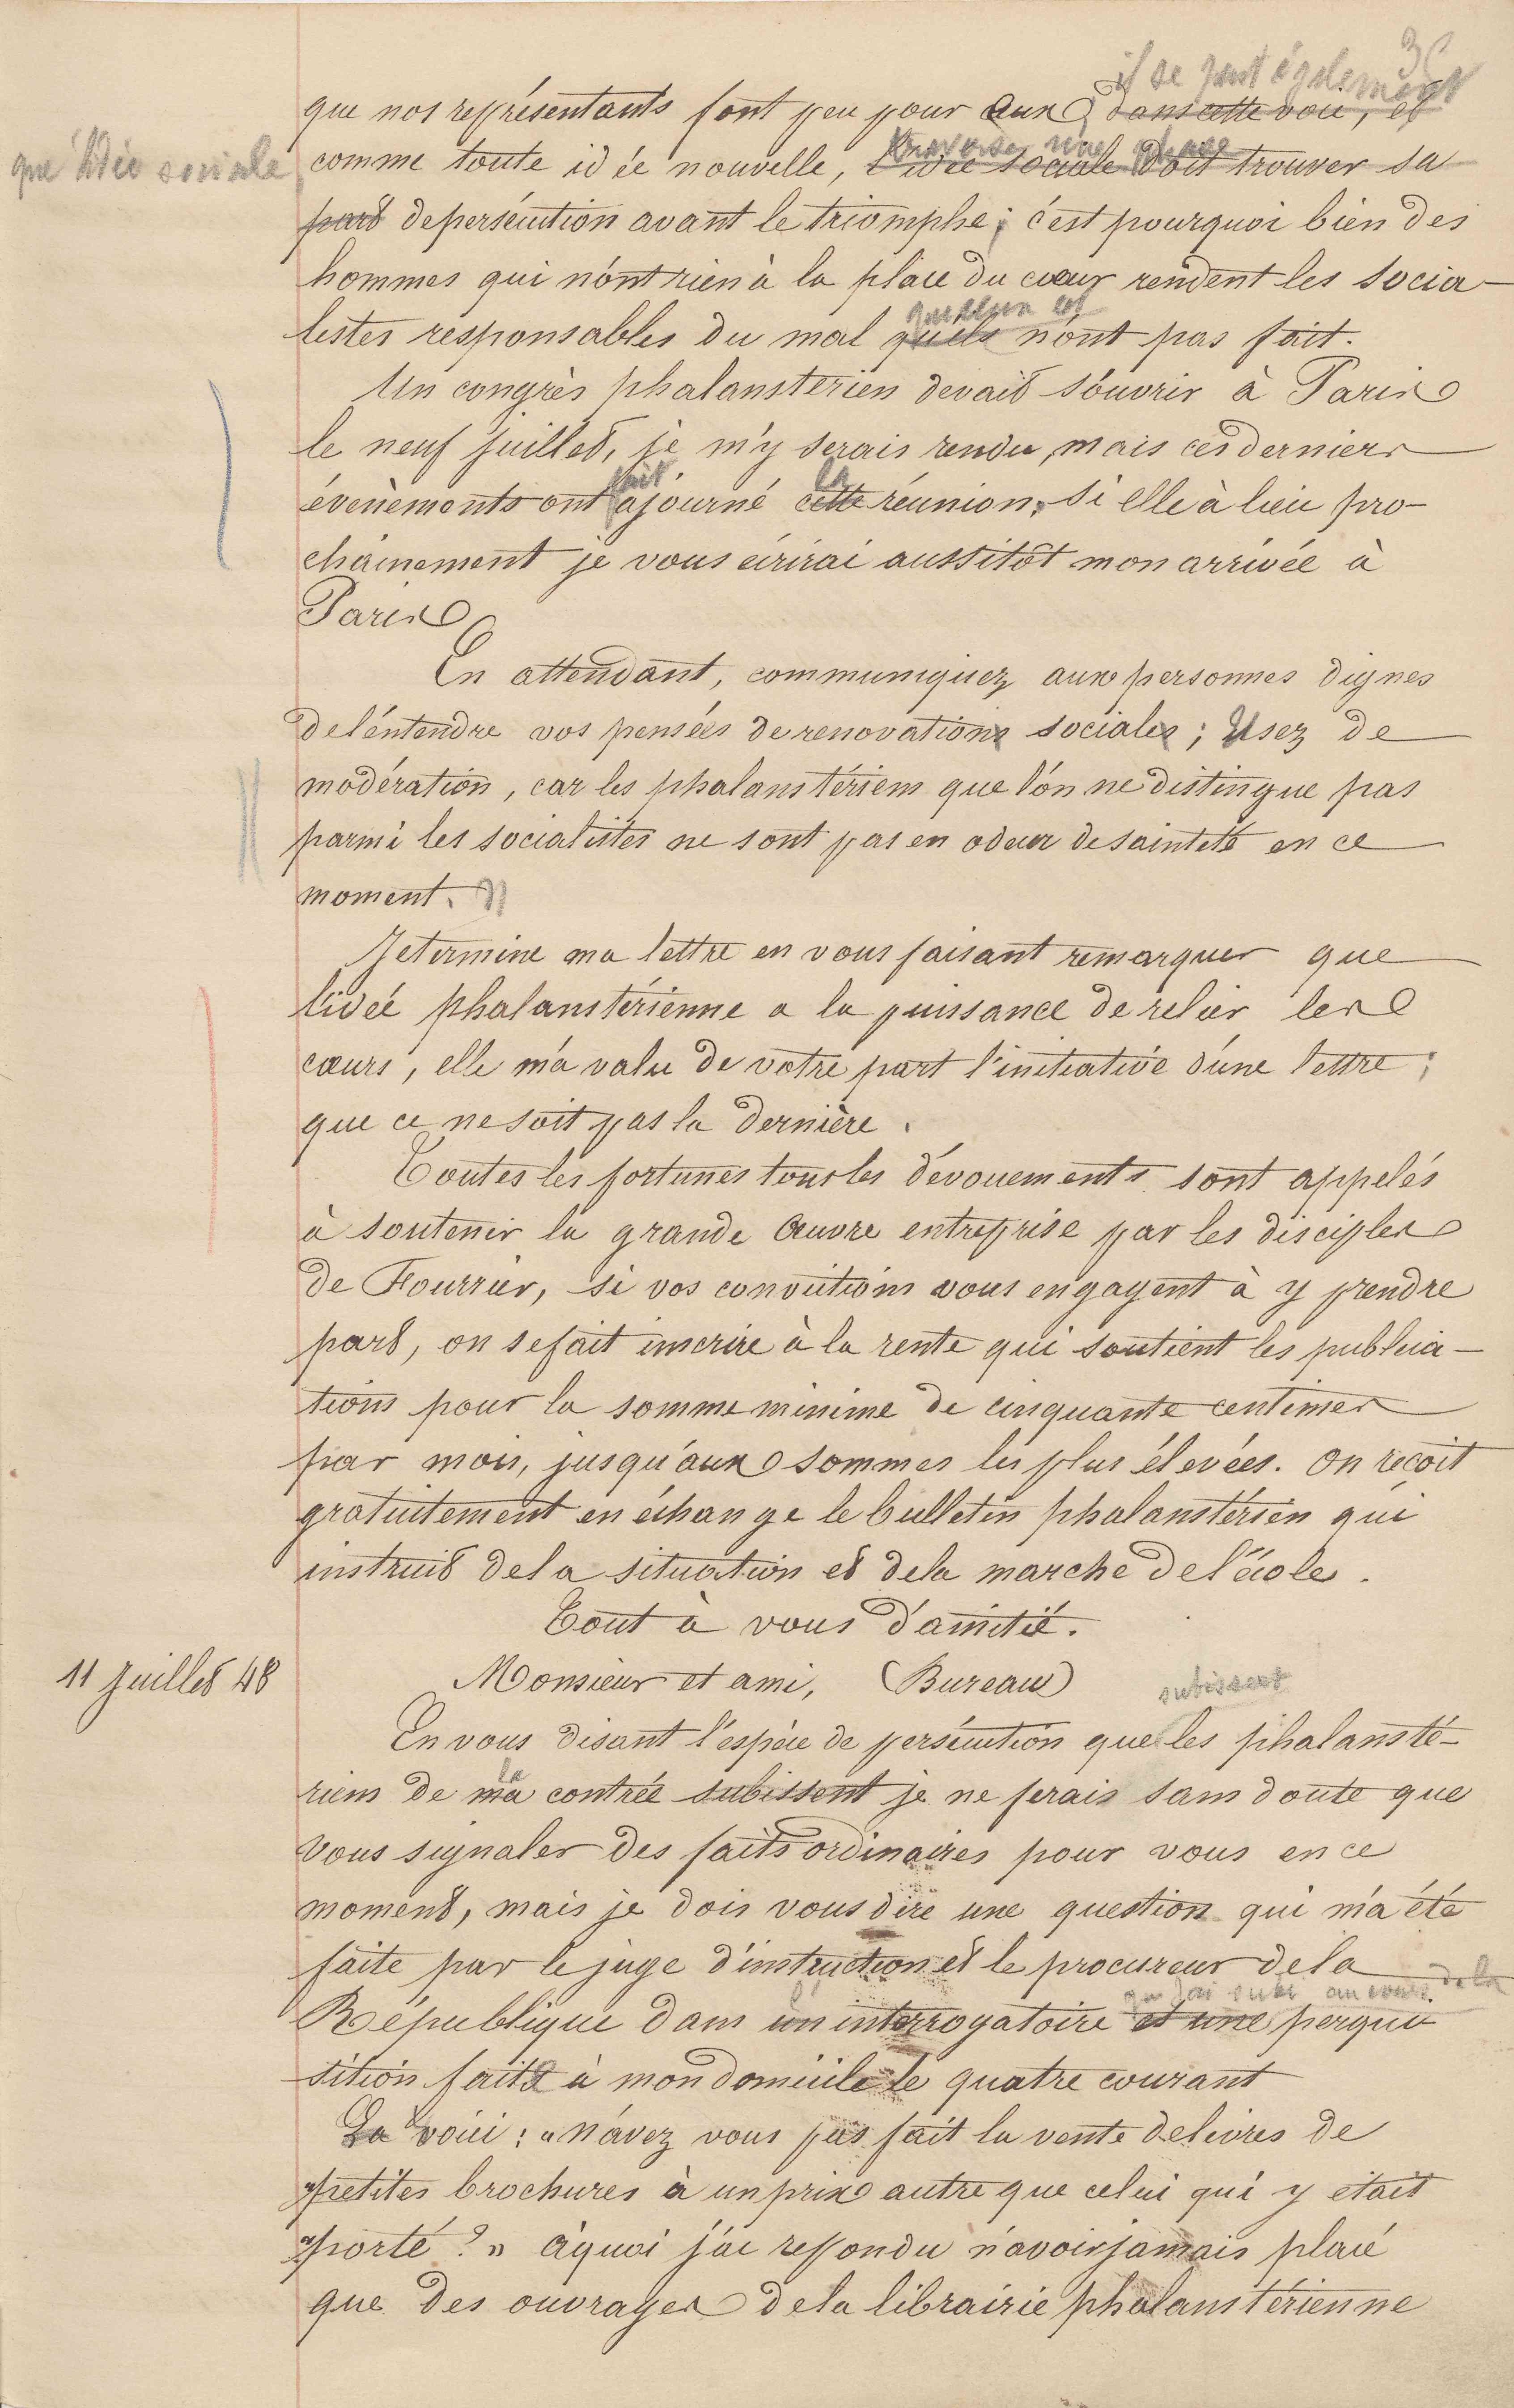 36
il se peut également
que nos représentants font peu pour eux, dans cette voie, et
que l'idée sociale
traverse une phase
comme toute idée nouvelle, l'idée sociale doit trouver sa
part de persécution avant le triomphe; c'est pourquoi bien des
hommes qui n'ont rien à la place du cœur rendent les socia-
listes responsables du mal qu'ils n'ont pas fait.
Un congrès phalanstérien devait s'ouvrir à Paris
le neuf juillet, je m'y serais rendu, mais ces derniers
fait la
évenèments ont ajourné cette réunion. Si elle à lieu pro-
chainement je vous écrirai aussitôt mon arrivée à
Paris
En attendant, communiquez aux personnes dignes
de l'entendre vos pensées de renovations sociales; Usez de
modération, car les phalanstériens que l'on ne distingue pas
parmi les socialistes ne sont pas en odeur de sainteté en ce
moment.
Je termine ma lettre en vous faisant remarquer que
l'idée phalanstérienne a la puissance de relier les
cœurs, elle m'a valu de votre part l'initiative d'une lettre;
que ce ne soit pas la dernière.
Toutes les fortunes tous les dévouements sont appelés
à soutenir la grande Œuvre entreprise par les disciples
de Fourrier, si vos convictions vous engagent à y prendre
part, on se fait inscrire à la rente qui soutient les publica-
tions pour la somme minime de cinquante centimes
par mois, jusqu'aux sommes les plus élevées. On reçoit
gratuitement en échange le bulletin phalanstérien qui
instruit de la situation et de la marche de l'école.
Tout à vous d'amitié.
11 Juillet 48
Monsieur et ami, (Bureau)
subissent
En vous disant l'espèce de persécution que les phalansté-
la
riens de ma contrée subissent je ne ferais sans doute que
vous signaler des faits ordinaires pour vous en ce
moment, mais je dois vous dire une question qui m'a été
faite par le juge d'instruction et le procureur de la
l' que j'ai subi au cours de la
République dans un interrogatoire et une perqui
sition faite à mon domicile le quatre courant
La voici: "N'avez vous pas fait la vente de livres de
"petites brochures à un prix autre que celui qui y était
"porté?" à quoi j'ai repondu n'avoir jamais placé
que des ouvrages de la librairie phalanstérienne